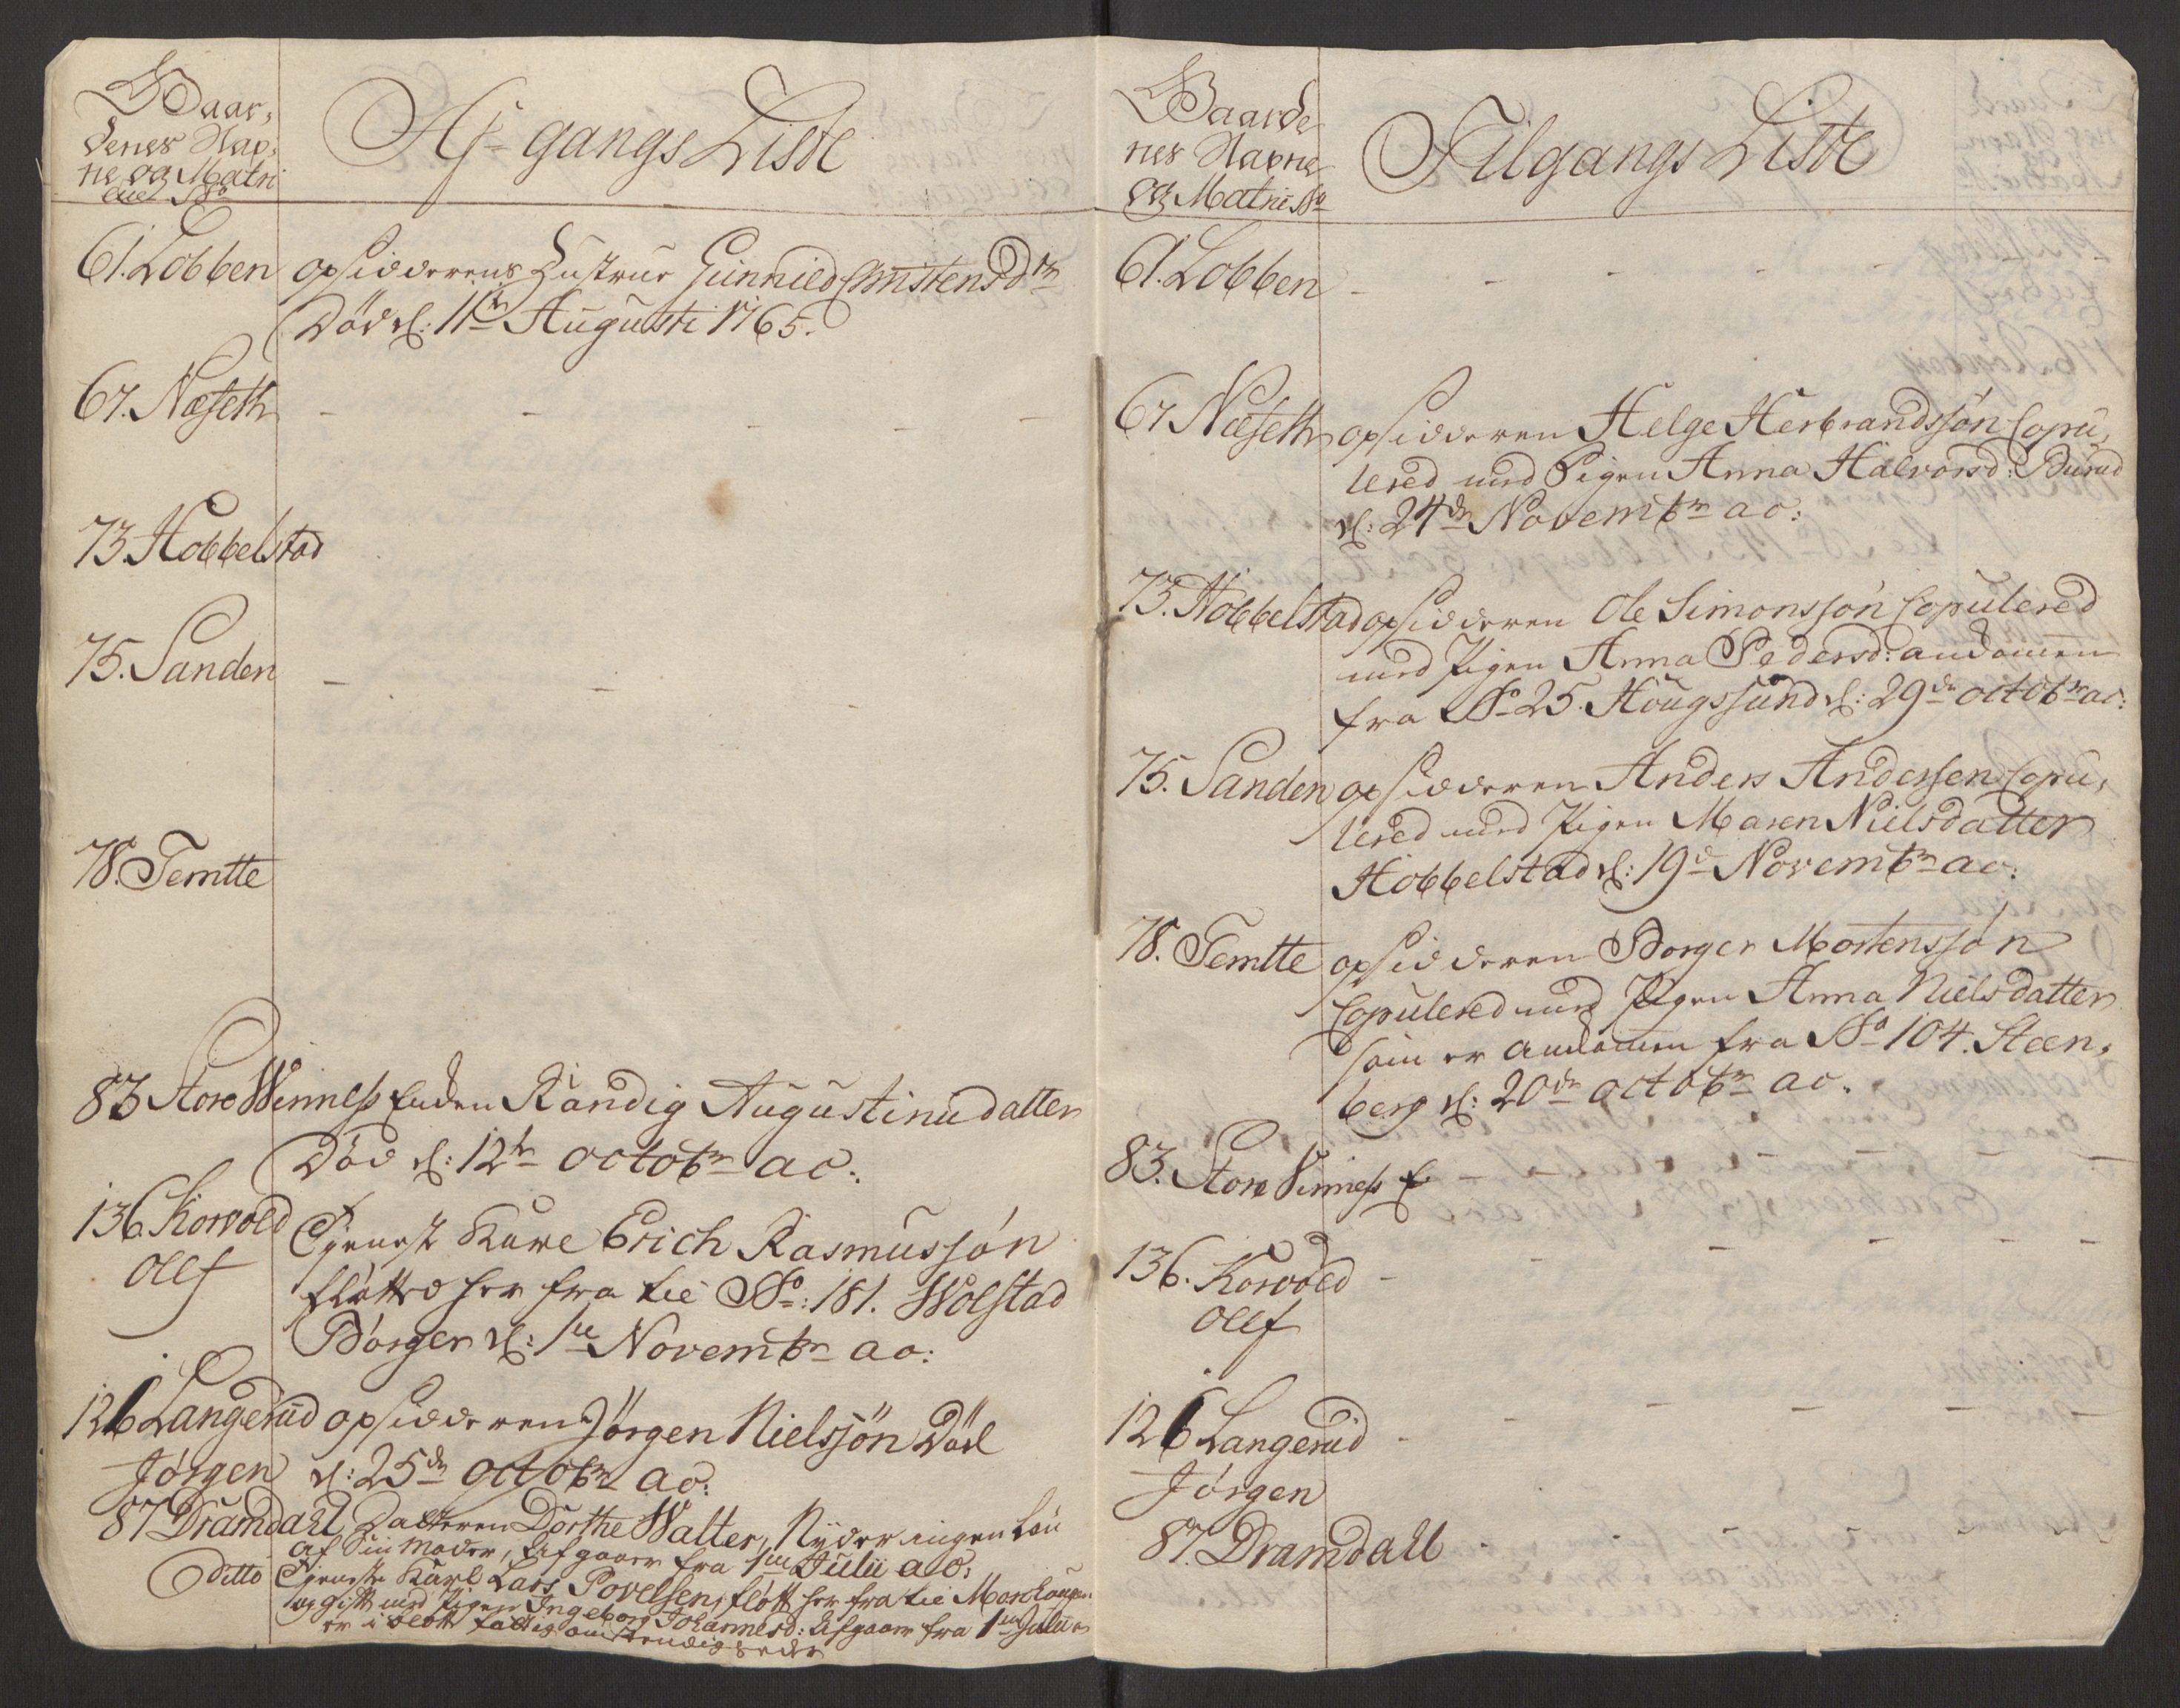 Gaar,
denes Nav,
ne og Matri
cul No
Af-gangs Liste
61. Lobben opsidderens Hustrue Gunnild Christensdtr
Död d: 11te Augusti 1765.
67. Næseth - - - - - -
73 Hobbelstad
75. Sanden - -
78. Temtte
83 Store Winness Enken Randig Augustinudatter
Död d: 12te octobr ac:
136 Korvold Tjeneste Karl Erich Rasmussön
Olef
fløtted her fra til No: 181. Wolstad
Börger d: 1te Novembr ao:
126 Langerud opsidderen Jörgen Nielssön Död
Jörgen d: 25de octobr ao:
87 Dramdall Datteren Dorthe Walter, Nyder ingen Løn
af Sin Moder, Afgaaer fra 1te Julii ao:
Ditto Tjeneste Karl Lars Povelsen, fløtt her fra til
og gift med Pigen Ingeborg Johannesd: Afgaaer fra 1te Julii
er i slett fattig omstendigheder
Gaarde
nes Navne
og Matric No
Tilgangs Liste
61. Lobben - - - - - -
67 Næseth opsidderen Helge Herbrandssön Copu,
lered med Pigen Anna Halvorsd: Burud
d: 24de Novembr ao:
73. Hobbelstad opsidderen Ole Simonssön Copulered
med Pigen Anna Pedersd: ankommen
fra No 25. Hougssund d: 29de octobr ac:
75. Sanden opsidderen Anders Anderssen Copu,
lered med Pigen Maren Nielsdatter
Hobbelstad d: 19de Novembr ao:
78. Temtte opsidderen Borger Mortenssön
Copulered med Pigen Anna Nielsdatter
som er ankommen fra No 104. Steen,
berg d: 20de octobr ao.
83. Store Winness - - - -
136. Korvold - - - - - -
Olef
126 Langerud - - - - - -
Jörgen
87. Dramdall - - - - -